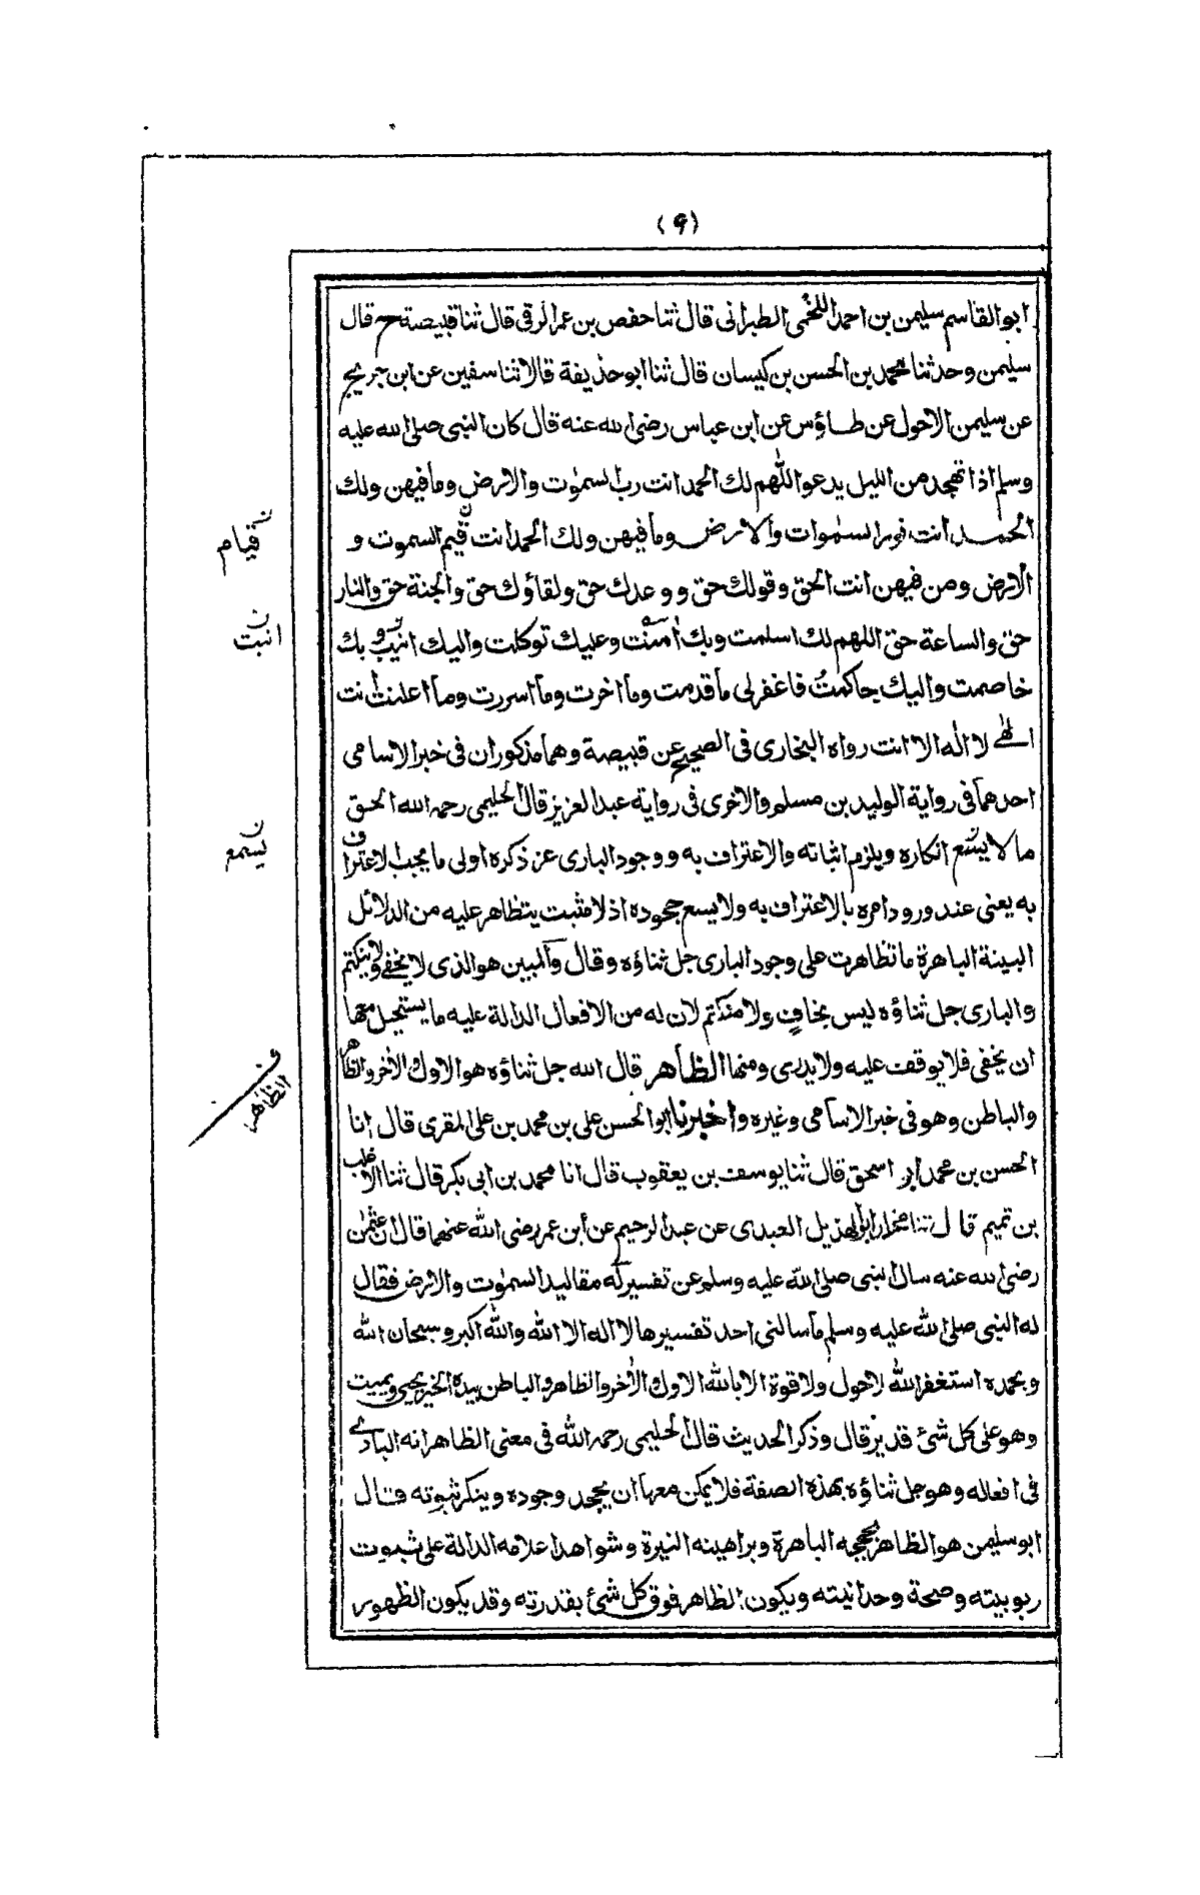 (٩)
ابو القاسم سليمن بن احمد اللخمى الطبرانى قال ثنا حفص بن عمر الرقى قال ثنا قبيصة ح قال
سليمن وحدثنا محمد بن الحسن بن كيسان قال ثنا ابو حذيفة قالا ثنا سفين عن ابن جريج
عن سليمن الاحول عن طاؤس عن ابن عباس رضى الله عنه قال كان النبى صلى الله عليه
وسلم اذا تهجد من الليل يدعو اللهم لك الحمد انت رب السمٰوٰت والارض وما فيهن ولك
الحمد انت نور السمٰوات والارض وما فيهن ولك الحمد انت قيم السموت و
الارض ومن فيهن انت الحق وقولك حق و وعدك حق ولقاؤك حق والجنة حق والنار
حق والساعة حق اللهم لك اسلمت وبك اٰمنت وعليك توكلت واليك انيب وبك
خاصمت واليك حاكمتُ فاغفرلى ما قدمت وما اخرت وما اسررت وما اعلنت انت
الٰهى لا اله الا انت رواه البخارى فى الصحيح عن قبيصة وهما مذكوران فى خبر الاسامى
احدهما فى رواية الوليد بن مسلم والاخرى فى رواية عبد العزيز قال الحليمى رحمه الله الحق
ما لا يسع انكاره ويلزم اثباته والاعتراف به ووجود البارى عز ذكره اولى ما يجب الاعتراف
به يعنى عند ورود امره بالاعتراف به ولا يسع جحوده اذ لا مثبت يتظاهر عليه من الدلائل
البينة الباهرة ما تظاهرت على وجود البارى جل ثناؤه وقال والمبين هو الذى لا يخفى ولا ينكتم
والبارى جل ثناؤه ليس بخافٍ ولا منكتم لان له من الافعال الدالة عليه ما يستحيل معها
ان يخفى فلا يوقف عليه ولا يدرى ومنها الظاهر قال الله جل ثناؤه هو الاول والاٰخر والظاهر
والباطن وهو فى خبر الاسامى وغيره واخبرنا ابو الحسن على بن محمد بن على المقرى قال انا
الحسن بن محمد بن اسحق قال ثنا يوسف بن يعقوب قال انا محمد بن ابى بكر قال ثنا الاغلب
بن تميم قال ثنا مخلد ابو الهذيل العبدى عن عبد الرحيم عن ابن عمر رضى الله عنهما قال ان عثمٰن
رضى الله عنه سال النبى صلى الله عليه وسلم عن تفسير له مقاليد السمٰوٰت والارض فقال
له النبى صلى الله عليه وسلم ما سالنى احد تفسيرها لا اله الا الله والله اكبر وسبحان الله
وبحمده استغفر الله لا حول ولا قوة الا بالله الاول الاٰخر والظاهر والباطن بيده الخير يحيى ويميت
وهو على كل شئ قدير قال وذكر الحديث قال الحليمى رحمه الله فى معنى الظاهر انه البادى
فى افعاله وهو جل ثناؤه بهذه الصفة فلا يمكن معها ان يجحد وجوده وينكر ثبوته وقال
ابو سليمن هو الظاهر بحججه الباهرة وبراهينه النيرة وشواهد اعلامه الدالة على ثبوت
ربوبيته وصحة وحدانيته ويكون الظاهر فوق كل شئ بقدرته وقد يكون الظهور
ن
قيام
ن
انبت
ن
يسمع
ف
الظاهر